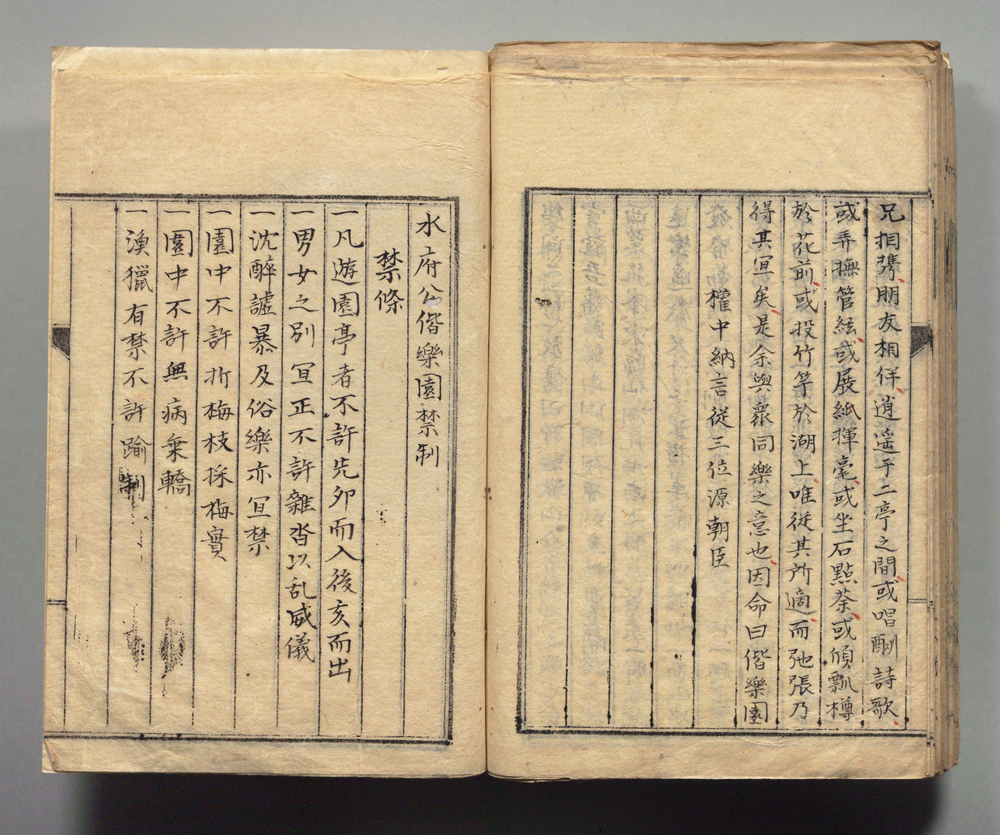 兄相携朋友相伴逍遥于二亭之間或唱酬詩歌
或弄撫管絃或展紙揮毫或坐石點茶或傾瓢樽
於花前或投竹竿於湖上唯従其所適而弛張乃
得其冝矣是余與衆同樂之意也因命曰偕樂園
權中納言従三位源朝臣
水府公偕樂園禁制
禁條
一凡遊園亭者不許先夘而入後亥而出
一男女之別冝正不許雜沓以乱威儀
一沈醉謔暴及俗樂亦冝禁
一園中不許折梅枝採梅實
一園中不許無病乗轎
一漁獵有禁不許踰制